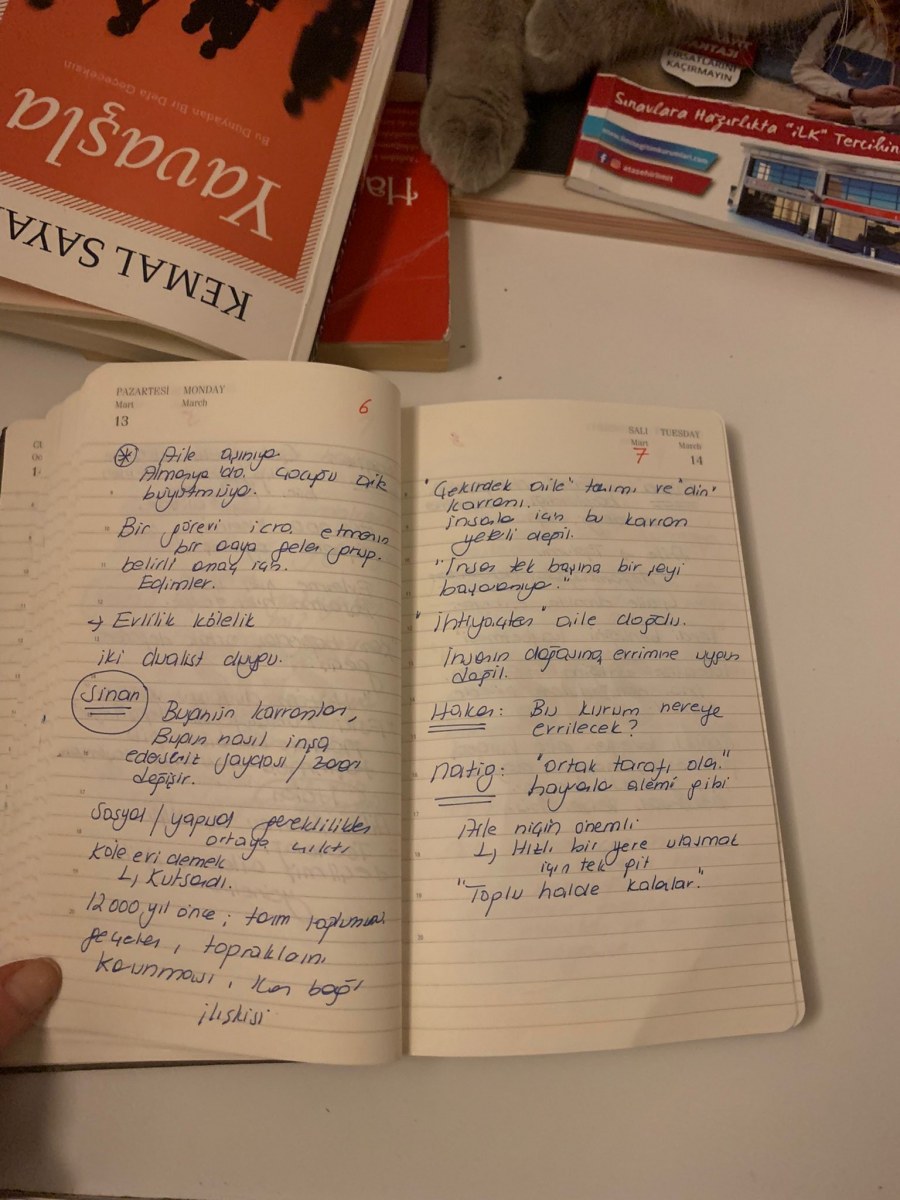 KEMAL SAYA
Yavaşla
Bu Dünyadan Bir Defa Geçeceksin
Ha
FIRSATLARINI
KAÇIRMAYIN
Sınavlara Hazırlıkta "İLK" Tercihin
PAZARTESİ MONDAY
Mart March
13
6
Aile aşınıyo
Almanya'da. Çocuğu aile
büyütmüyo.
Bir görevi icra etmenin
bir araya gelen grup.
belirli amaç için.
Edimler.
→ Evlilik kölelik
iki dualist duygu.
Sinan
Bugünün kavramları,
Bugün nasıl inşa
ederseniz
değişir.
Sosyal / yapısal gereklilikten
ortaya çıktı
Köle evi demek
↳ Kutsardı.
12000 yıl önce; tarım toplumuna
geçerken, toprakların
korunması, kan bağı
ilişkisi
SALI TUESDAY
Mart March
7
14
"Çekirdek aile" tanımı ve "din"
kavramı.
insanlar için bu kavram
yeterli değil.
"İnsan tek başına bir şeyi
başaramıyo."
"İhtiyaçtan" aile doğdu.
İnsanın doğasına evrimine uygun
değil.
Hakan: Bu kurum nereye
evrilecek?
Natig: "ortak tarafı olan."
hayvanlar alemi gibi
Aile niçin önemli
↳ Hızlı bir yere ulaşmak
için tek git
"Toplu halde kalırlar."